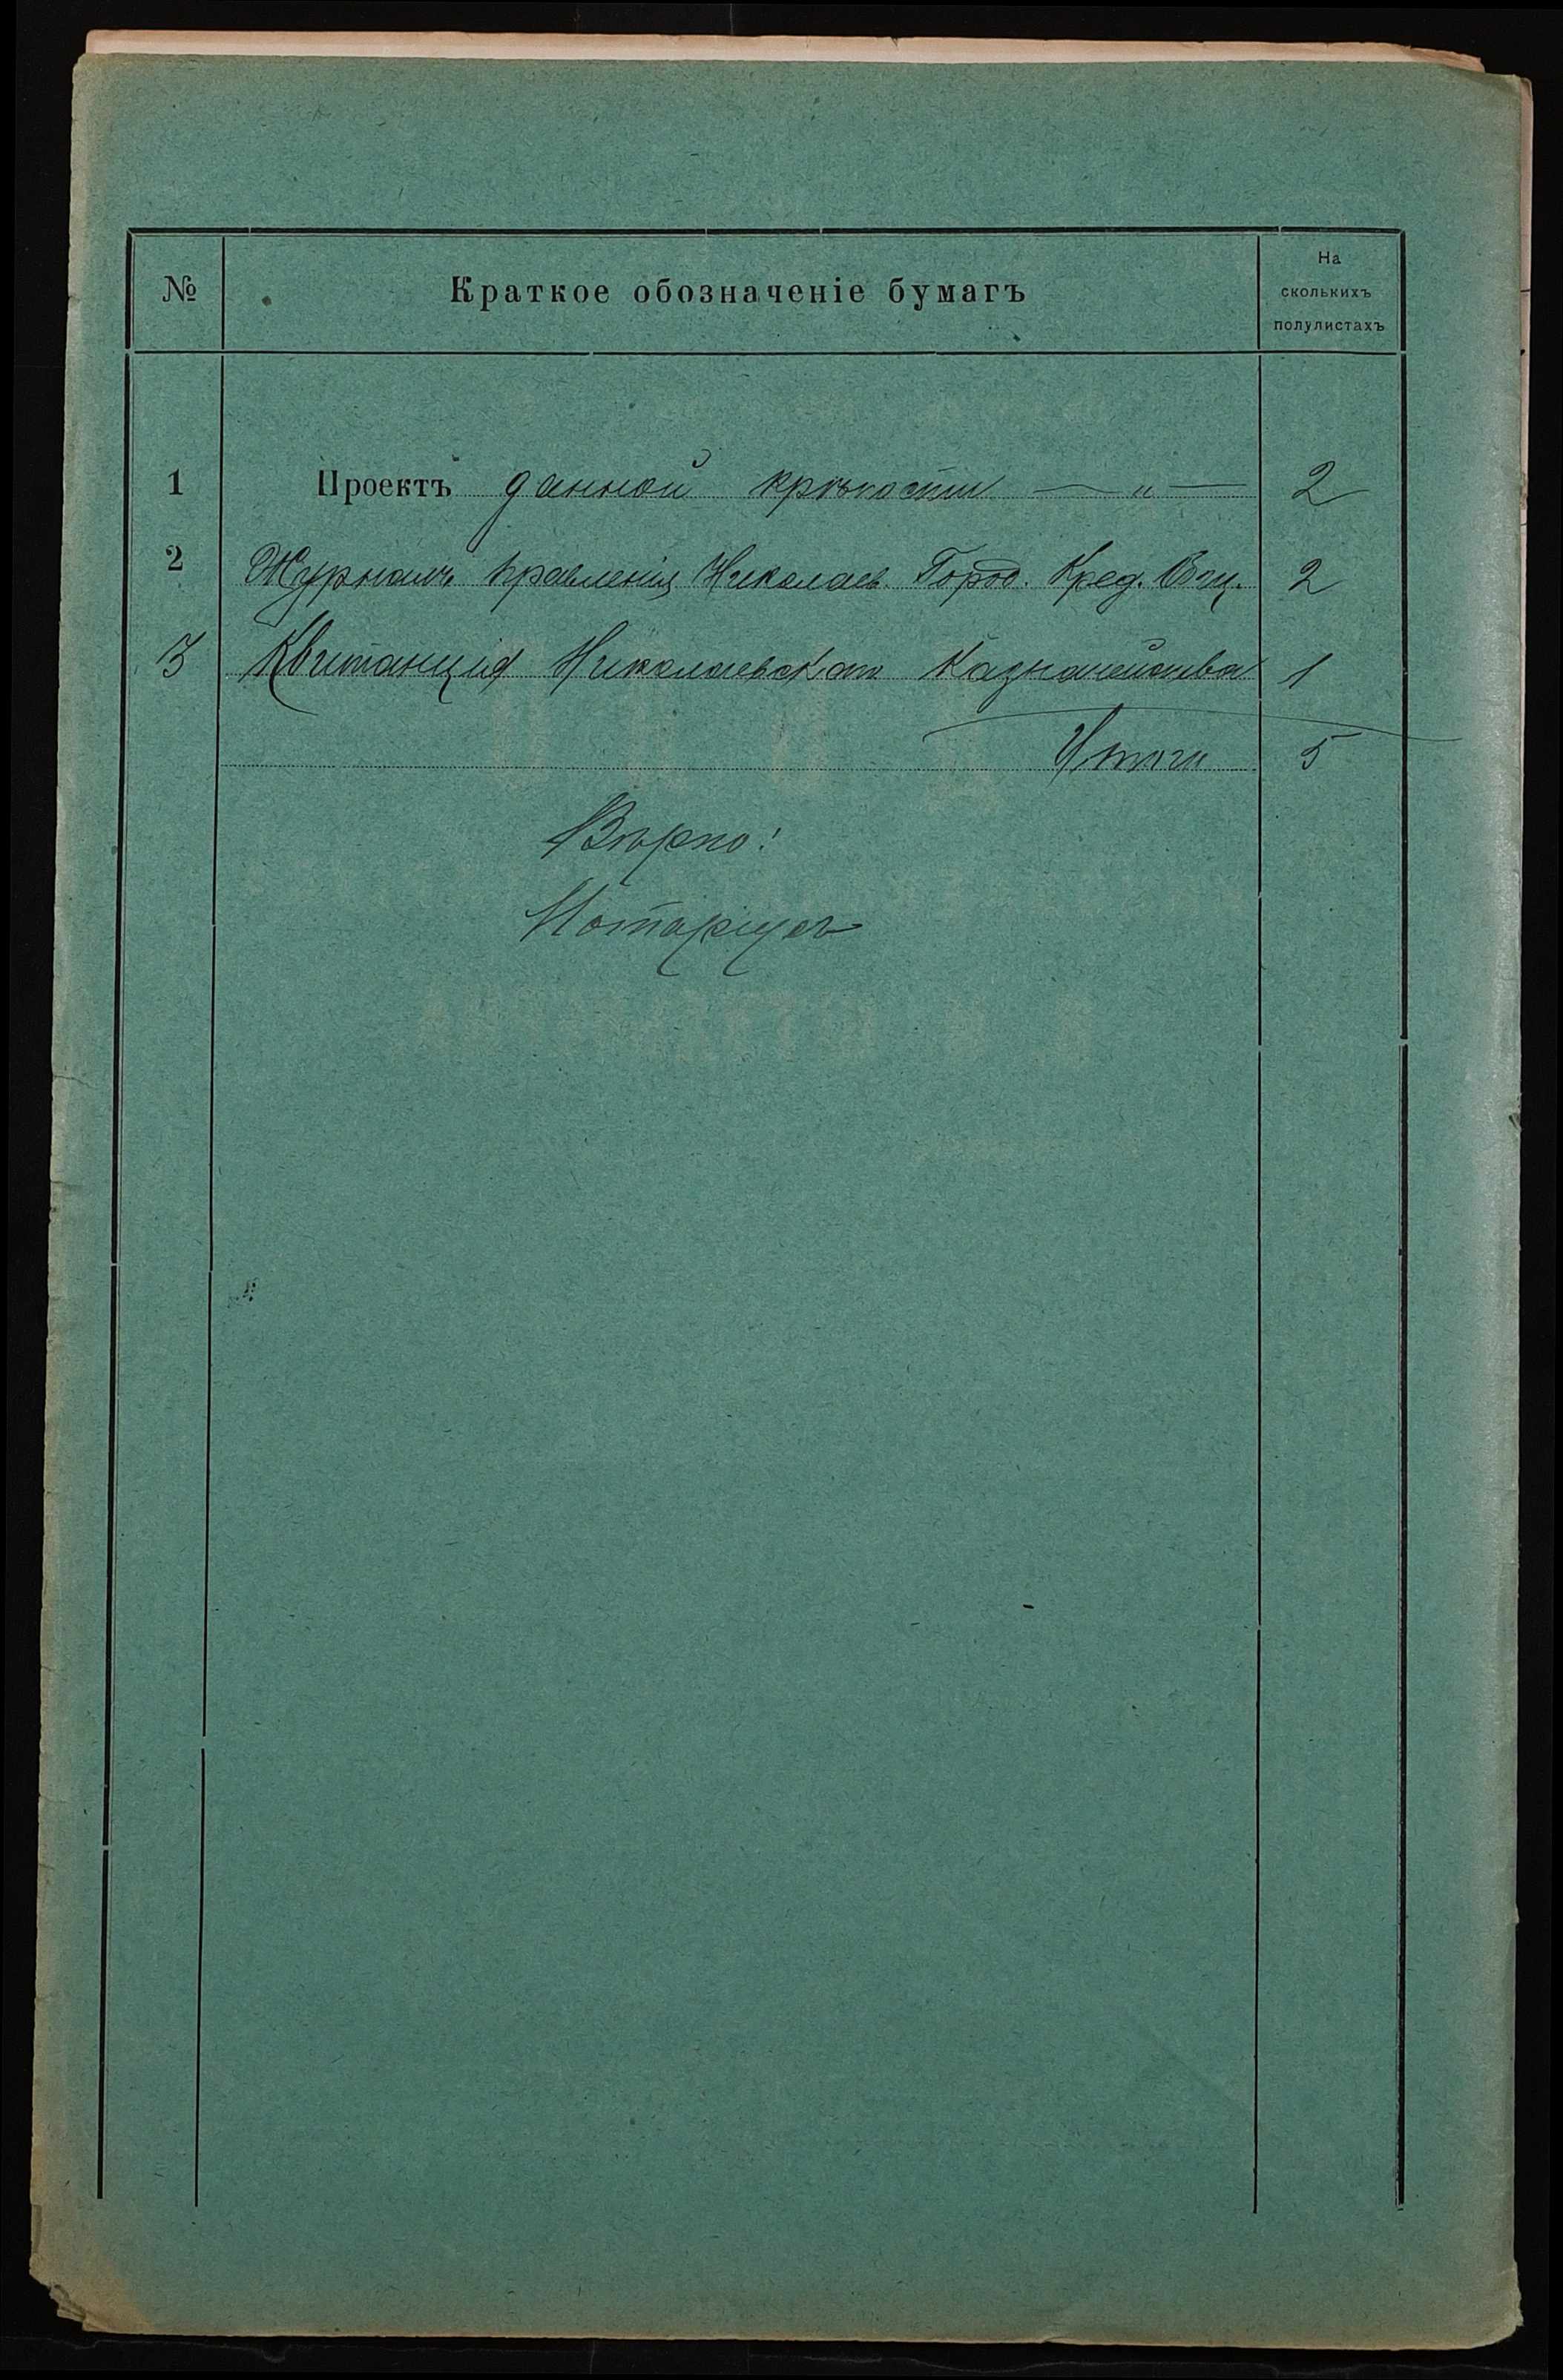 № Краткое обозначеніе бумагъ На сколькихъ полулистахъ
1 Проектъ данной крѣпости — „ — 2
2 Журналъ Правленія Николаев. Город. Кред. Общ. 2
3 Квитанція Николаевскаго Казначейства 1
Итого 5
Вѣрно!
Нотаріусъ